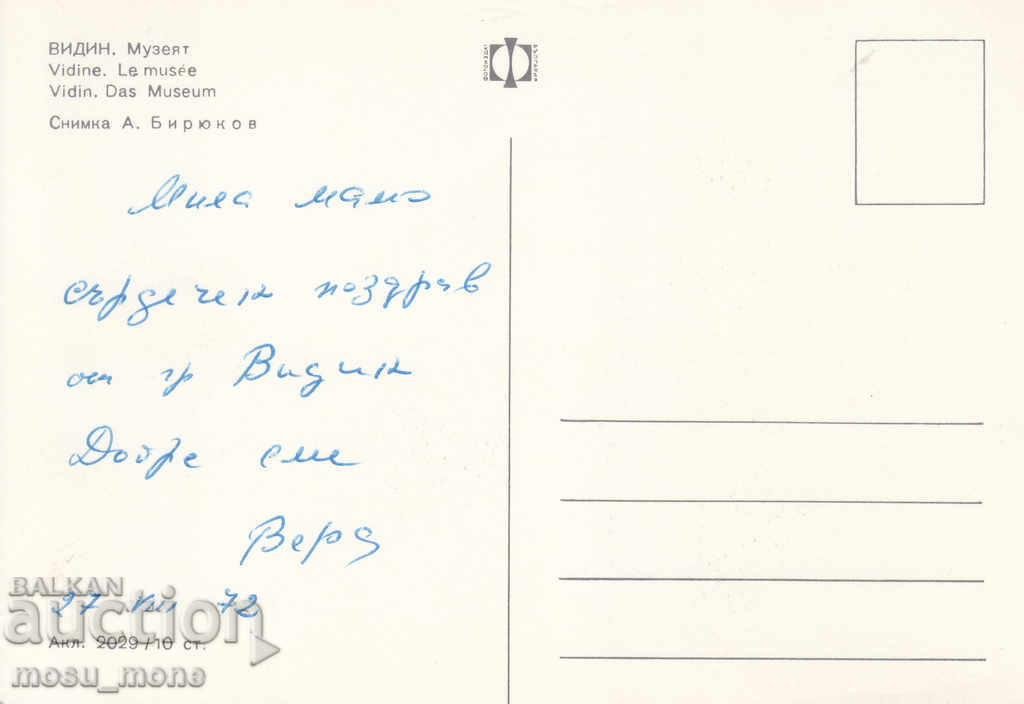 ВИДИН. Музеят
Vidine. Le musée
Vidin. Das Museum
Снимка А. Бирюков
ФОТОИЗДАТ
БЪЛГАРИЯ
Мила мамо
сърдечен поздрав
от гр Видин
Добре сме
Вера
27 VIII 72
Акл. 2029/10 ст.
BALKAN
auction
mosu_mone